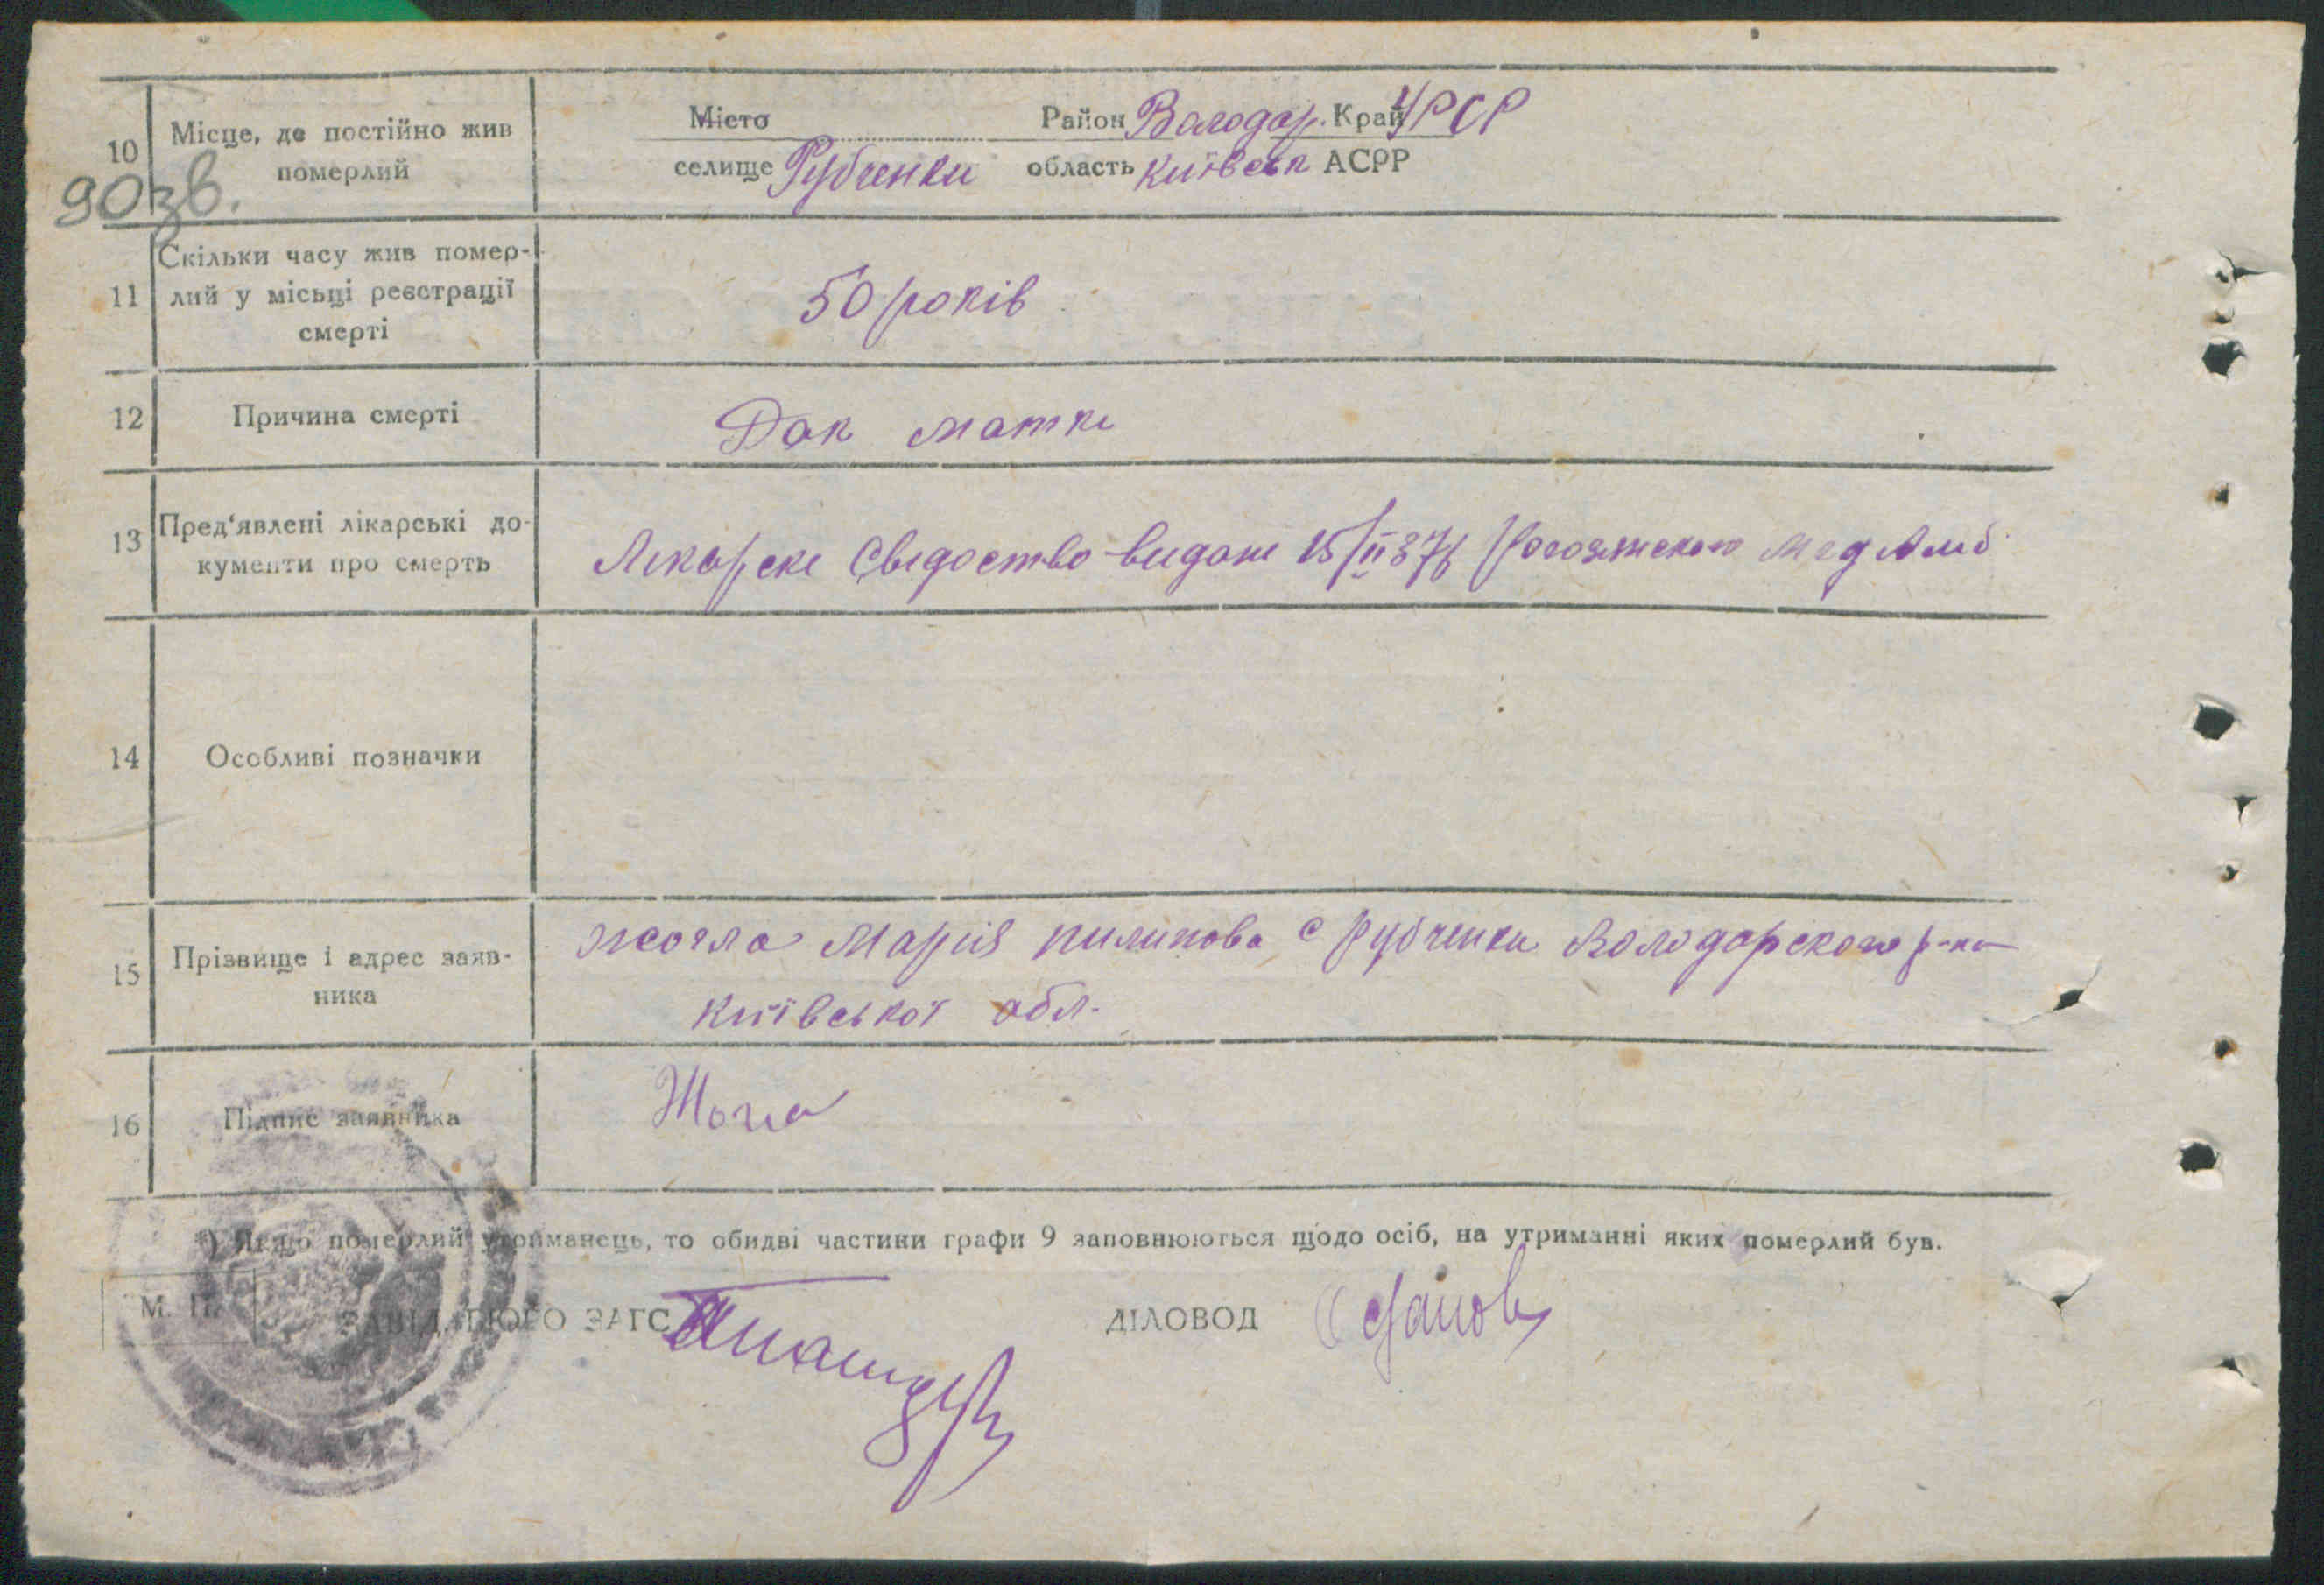 10 Місце, де постійно жив Місто Район Володар. Край УРСР
померлий селище Рубченки область Київськ АСРР
90зв.
Скільки часу жив помер-
11 лий у місьці реєстрації 50 років
смерті
12 Причина смерті Рак матки
13 Пред'явлені лікарські до-
кументи про смерть Лікарске Свідоство видане 15/II 37
14 Особливі позначки
15 Прізвище і адрес заяв- Марія пилипова с Рубченки Володарского р-на
ника Київської обл.
16 Підпис заявника
*) Якщо померлий утриманець, то обидві частини графи 9 заповнюються щодо осіб, на утриманні яких померлий був.
М. П. ЗАВІД. БЮРО ЗАГС ДІЛОВОД